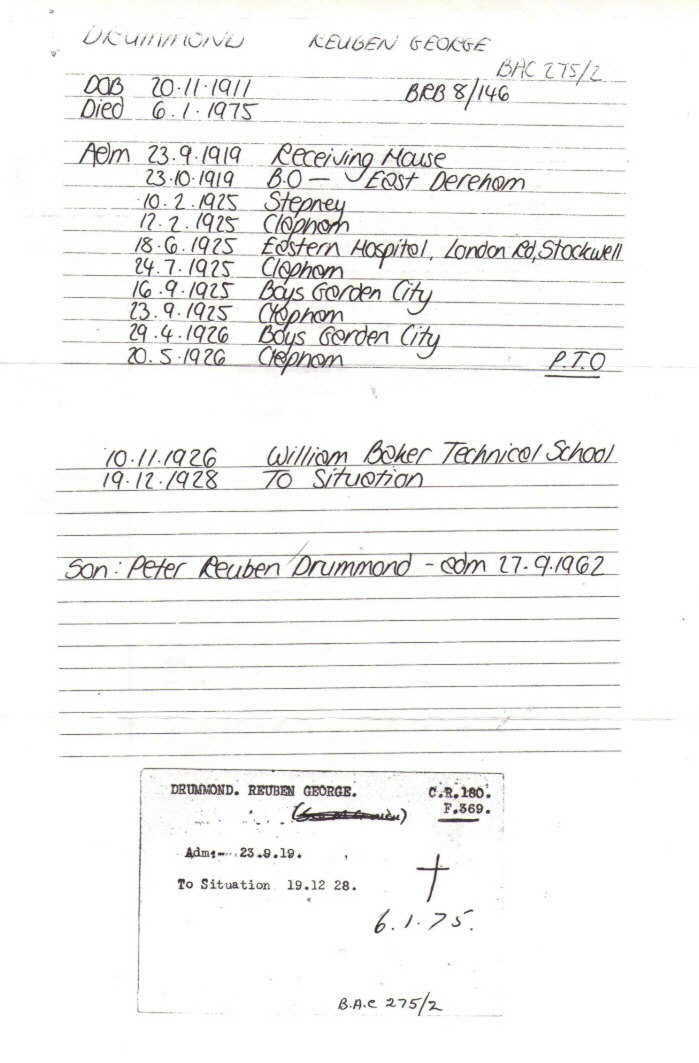 DRUMMOND REUBEN GEORGE
BAC 275/2
DOB 20.11.1911 BRB 8/146
Died 6.1.1975
Adm 23.9.1919 Receiving House
23.10.1919 B.O — East Dereham
10.2.1925 Stepney
12.2.1925 Clapham
18.6.1925 Eastern Hospital, London Rd, Stockwell
24.7.1925 Clapham
16.9.1925 Boys Garden City
23.9.1925 Clapham
29.4.1926 Boys Garden City
20.5.1926 Clapham P.T.O
10.11.1926 William Baker Technical School
19.12.1928 To Situation
Son: Peter Reuben Drummond - adm 27.9.1962
DRUMMOND. REUBEN GEORGE. C.R.180.
F.369.
Adm:- 23.9.19.
To Situation 19.12 28.
6.1.75.
B.A.C 275/2